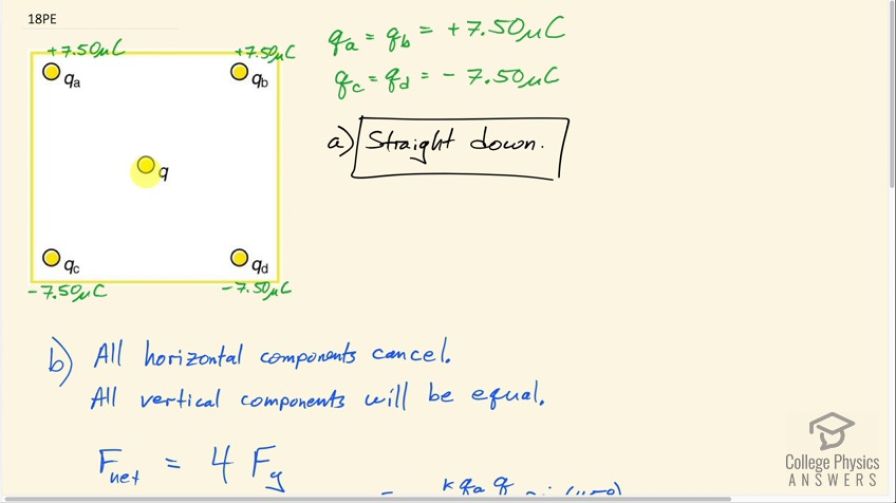 18PE
+7.50μC +7.50μC
qa qb
q
qc qd
-7.50μC -7.50μC
qa = qb = +7.50μC
qc = qd = -7.50μC
a) Straight down.
b) All horizontal components cancel.
All vertical components will be equal.
Fnet = 4 Fy
= k qa q
College Physics
ANSWERS